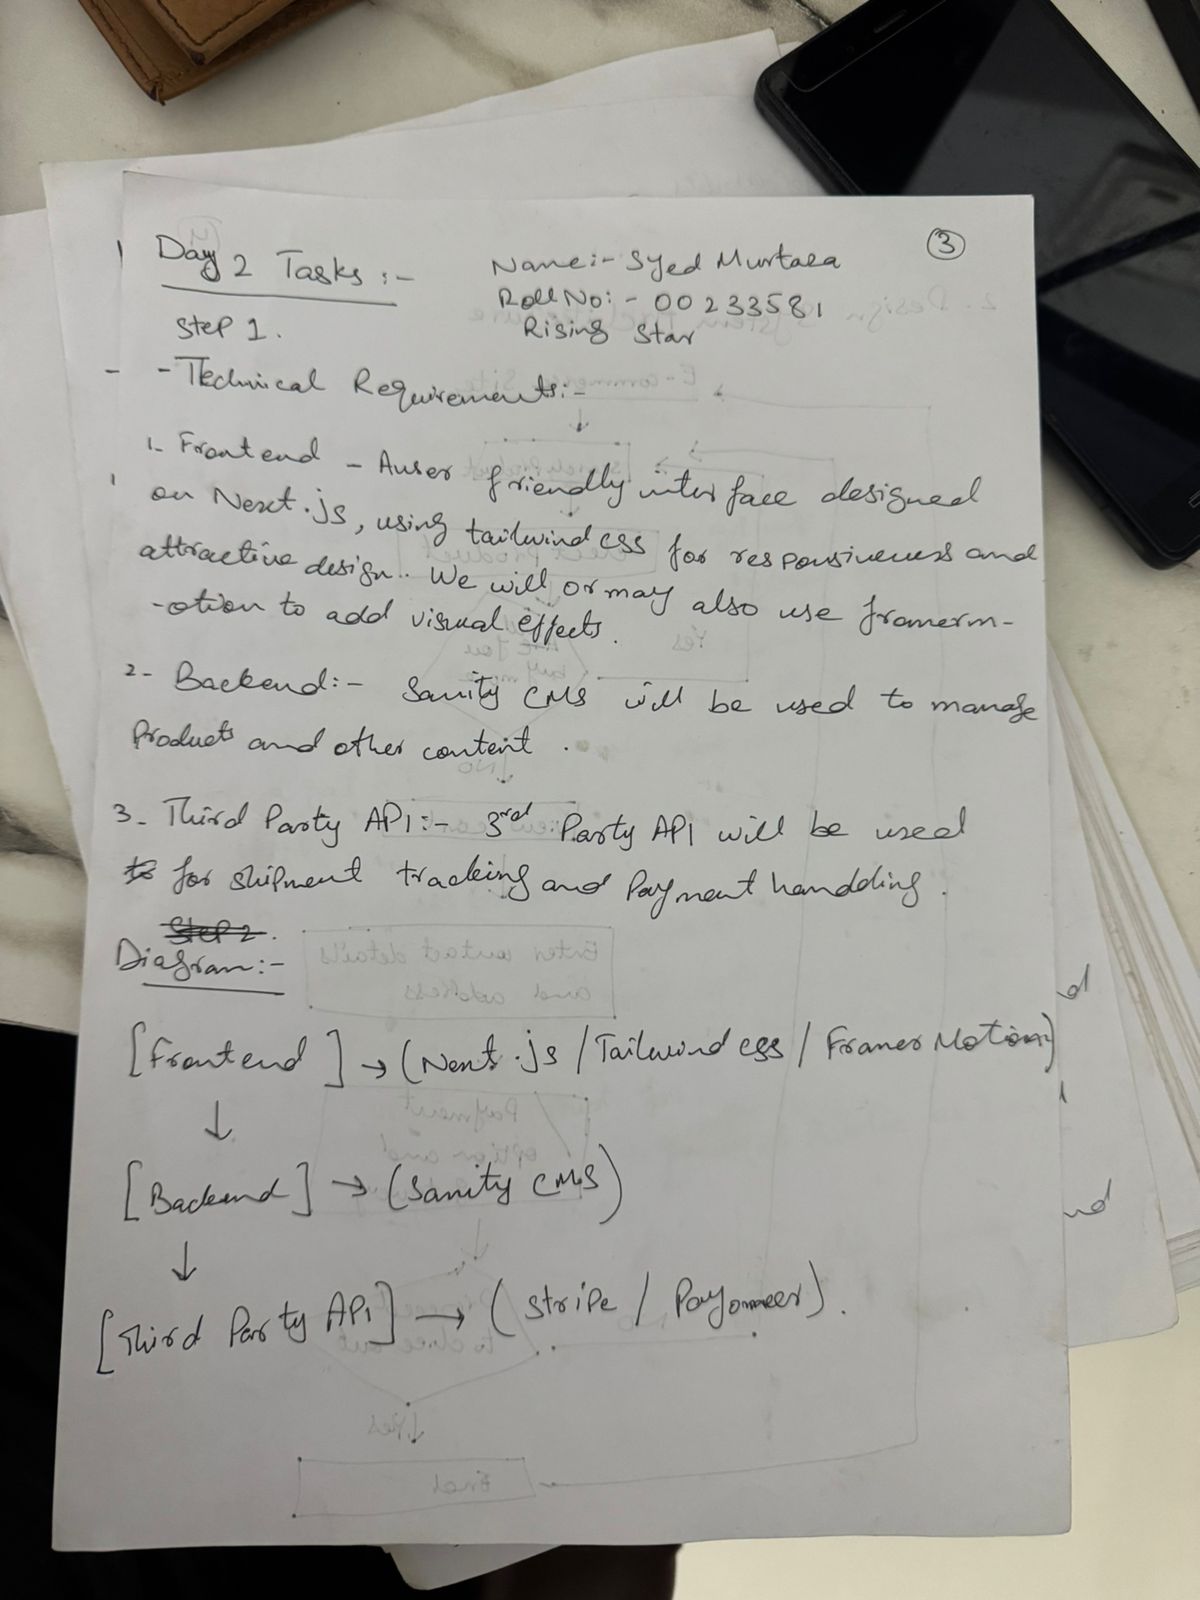 Day 2 Tasks :-
Name:- Syed Murtaza
3
Roll No:- 00233581
Step 1.
Rising Star
- Technical Requirements:-
1- Frontend - A user friendly interface designed
on Next.js, using tailwind css for responsiveness and
attractive design. We will or may also use framerm-
-otion to add visual effects.
2- Backend:- Sanity CMS will be used to manage
Products and other content.
3- Third Party API:- 3rd Party API will be used
for shipment tracking and Payment handdling.
Step 2.
Diagram:-
[Frontend] → (Next.js / Tailwind css / Framer Motion)
↓
[Backend] → (Sanity CMS)
↓
[Third Party API] → (Stripe / Payoneer).